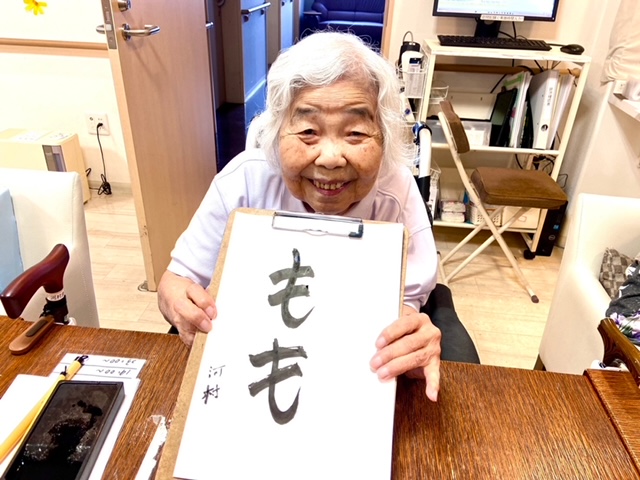 もも
河村